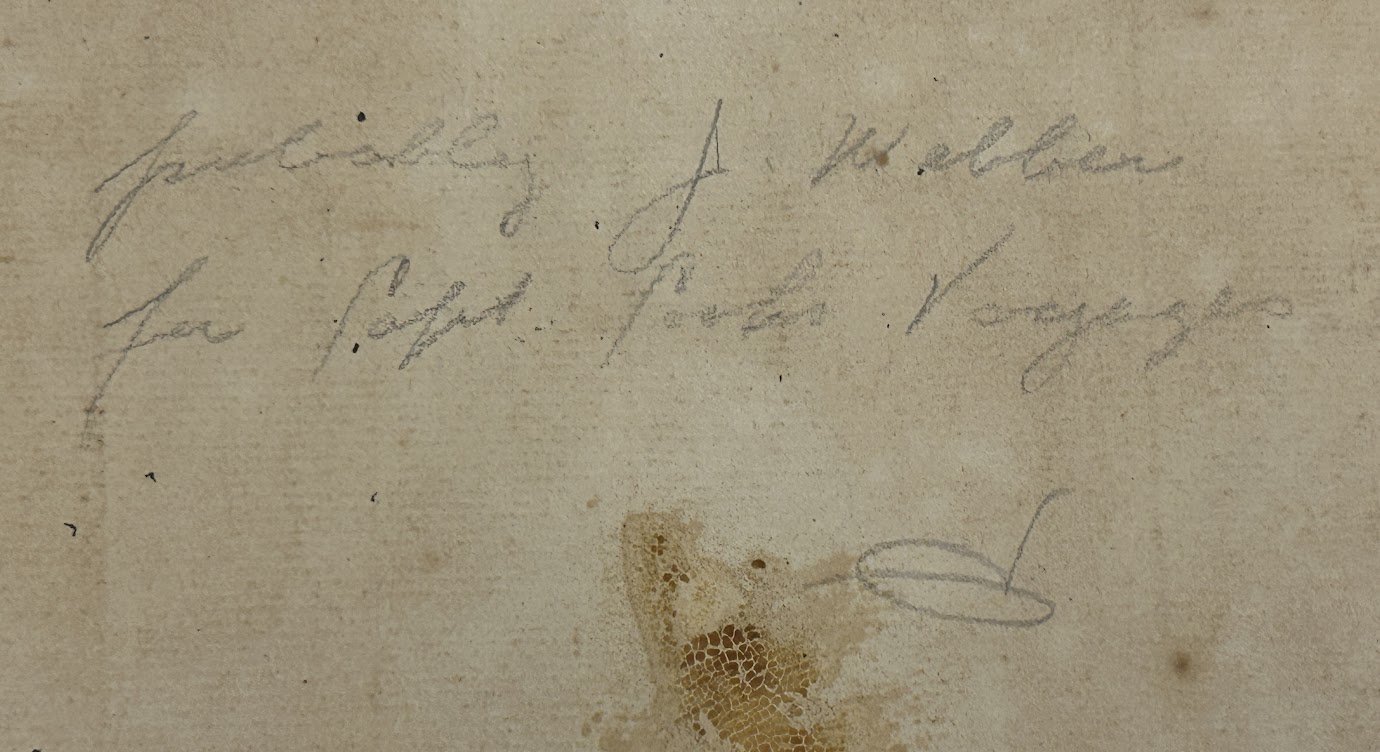 probably J. Webber
for Capt. Cooks Voyages